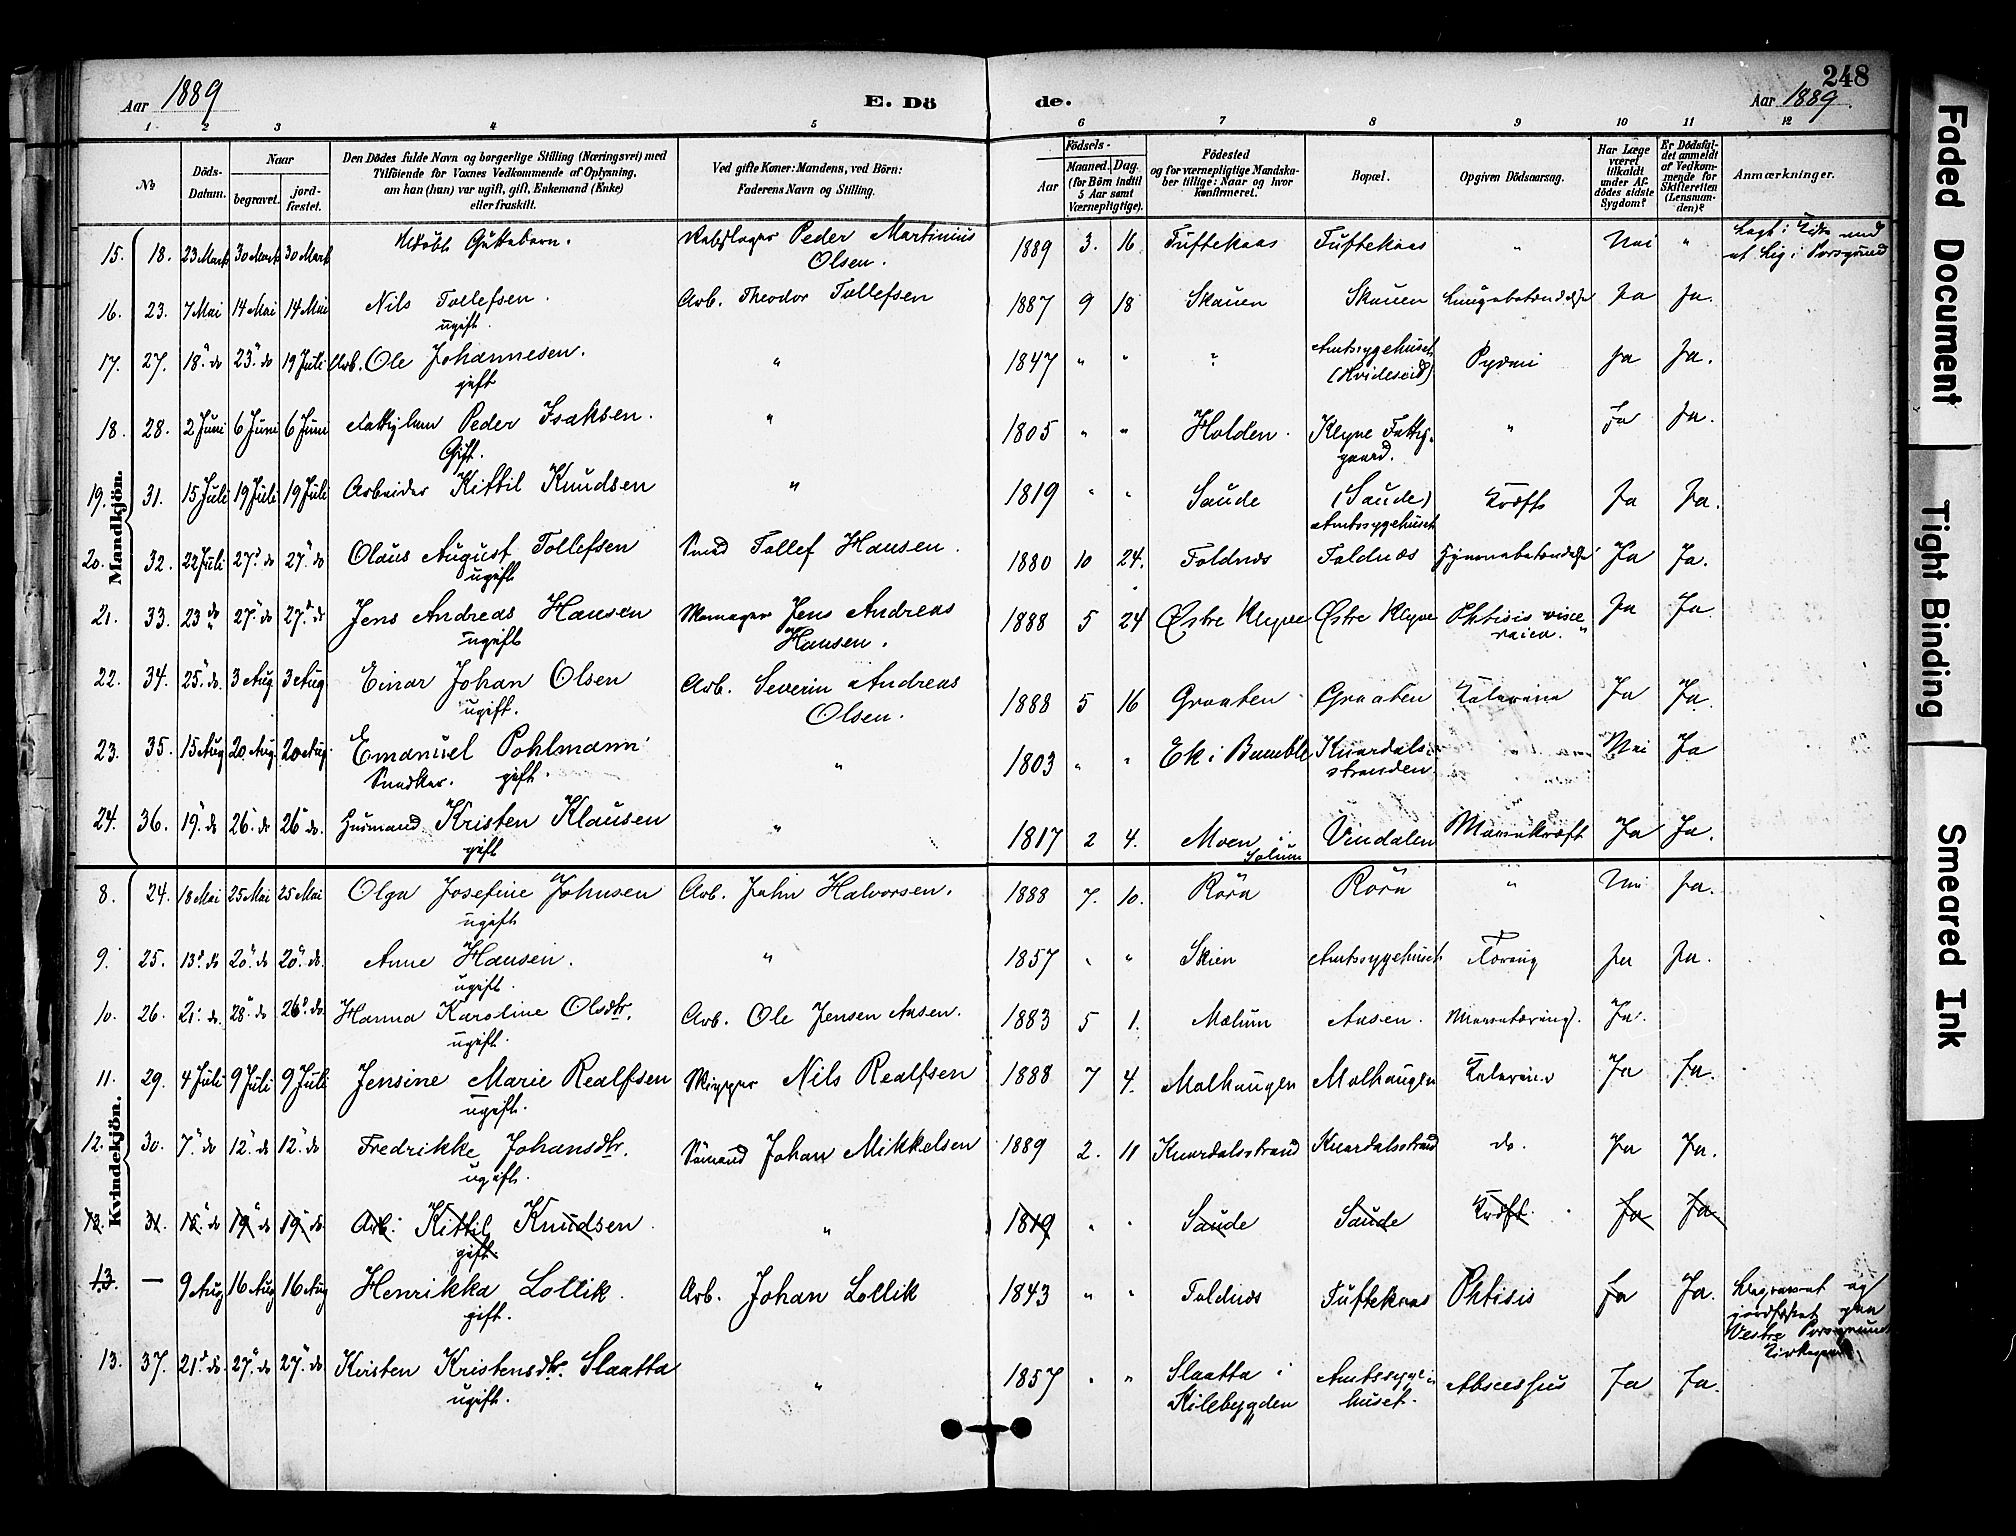 248
Aar 1889
E. Dö
de.
Aar 1889
1 2 3 4 5 6 7 8 9 10 11 12
No
Döds-Datum.
Naar
begravet.
jord-fæstet.
Den Dödes fulde Navn og borgerlige Stilling (Næringsvei) med
Tilföiende for Voxnes Vedkommende af Oplysning,
om han (hun) var ugift, gift, Enkemand (Enke)
eller fraskilt.
Ved gifte Koner: Mandens, ved Börn:
Faderens Navn og Stilling.
Födsels-
Aar
Maaned. Dag.
(for Börn indtil
5 Aar samt
Værnepligtige).
Födested
og for værnepligtige Mandska-
ber tillige: Naar og hvor
konfirmeret.
Bopæl.
Opgiven Dödsaarsag.
Har Læge
været
tilkaldt
under Af-
dödes sidste
Sygdom?
Er Dödsfal-
det anmeldt
af Vedkom-
mende for
Skifteretten
(Lensman-
den)?
Anmærkninger.
Mandkjön.
15. 18. 23 Marts 30 Marts 30 Marts Udöbt Guttebarn. Rebslager Peder Martinius Olsen. 1889 3. 16 Tuftekaas Tuftekaas " Nei "
16. 23. 7 Mai 14 Mai 14 Mai Nils Tollefsen. ugift. Arb. Theodor Tollefsen 1887 9 18 Skauen Skauen Lungebetændelse Ja Ja.
17. 27. 18 " do 23 " do 19 Juli Arb. Ole Johannesen. gift " 1847 " " ? Amtssygehuset (Hvideseid) Pyæmi Ja Ja.
18. 28. 2 Juni 6 Juni 6 Juni Fattiglem Peder Isaksen. Gift. " 1805 " " Holden. Klyve Fattiggaard. " Ja Ja.
19. 31. 15 Juli 19 Juli 19 Juli Arbeider Kittil Knudsen " 1819 " " Saude (Saude) Amtssygehuset Kræft Ja Ja.
20. 32. 22 Juli 27 " do 27 " do Olaus August Tollefsen ugift Smed Tollef Hansen. 1880 10 24. Foldnæs Foldnæs Hjernebetændelse Ja Ja.
21. 33. 23 do 27 " do 27 " do Jens Andreas Hansen ugift Skomager Jens Andreas Hansen. 1888 5 24 Østre Klyve Østre Klyve Phtisis Ja Ja
22. 34. 25 " do. 3 Aug 3 Aug Einar Johan Olsen ugift. Arb. Severin Andreas Olsen. 1888 5 16 Graaten Graaten Kolerine Ja Ja.
23. 35. 15 Aug 20 Aug. 20 Aug. Emanuel Pohlmann Snedker. gift. " 1803 " " Ek i Bamble Knardalsstranden. Nei Ja
24. 36. 19 " do 26 " do 26 " do. Husmand. Kristen Klausen gift " 1817 2 4. Moen i Solum Vindalen Mavekræft Ja Ja.
Kvindekjön.
8. 24. 18 Mai 25 Mai 25 Mai Olga Josefine Johnsen ugift Arb. John Halvorsen. 1888 7. 10. Röra Röra " Nei Ja.
9. 25. 13 " do 20 " do 20 " do. Anne Hansen. ugift. " 1857 " " Skien Amtssygehuset Tæring Ja Ja.
10. 26. 21 " do. 28 " do 26 " do. Hanna Karoline Olsdtr. ugift. Arb. Ole Jensen Aasen. 1883 5 1. Mælum Aasen. Mavetæring. Ja.
11. 29. 4 Juli 9 Juli 9 Juli Jensine Marie Realfsen ugift. Skipper Nils Realfsen 1888 7 4. Molhaugen Molhaugen Kolerine Ja Ja.
12. 30. 7 " do 12 " do 12 " do Fredrikke Johansdtr. ugift. Sömand Johan Mikkelsen 1889 2. 11 Knardalsstrand Knardalsstrand do. Ja Ja.
13. 31. 15 " do 19 " do 19 " do Arb. Kittil Knudsen. gift. " 1819 " " Saude Saude Kræft. Ja Ja.
13. — 9 Aug 16 Aug 16 Aug Henrikka Lollik. gift. Arb. Johan Lollik 1843 " " Foldnæs Tuftekaas Phtisis Ja Ja. Begravet og jordfæstet paa Vestre Porsgrund Kirkegaard.
13. 37. 21 " do. 27 " do 27 " do Kirsten Kristensdtr. Slaatta ugift. " 1857 " " Slaatta i Kilebygden Amtssygehuset. Abscessus Ja Ja.
Faded Document
Tight Binding
Smeared Ink